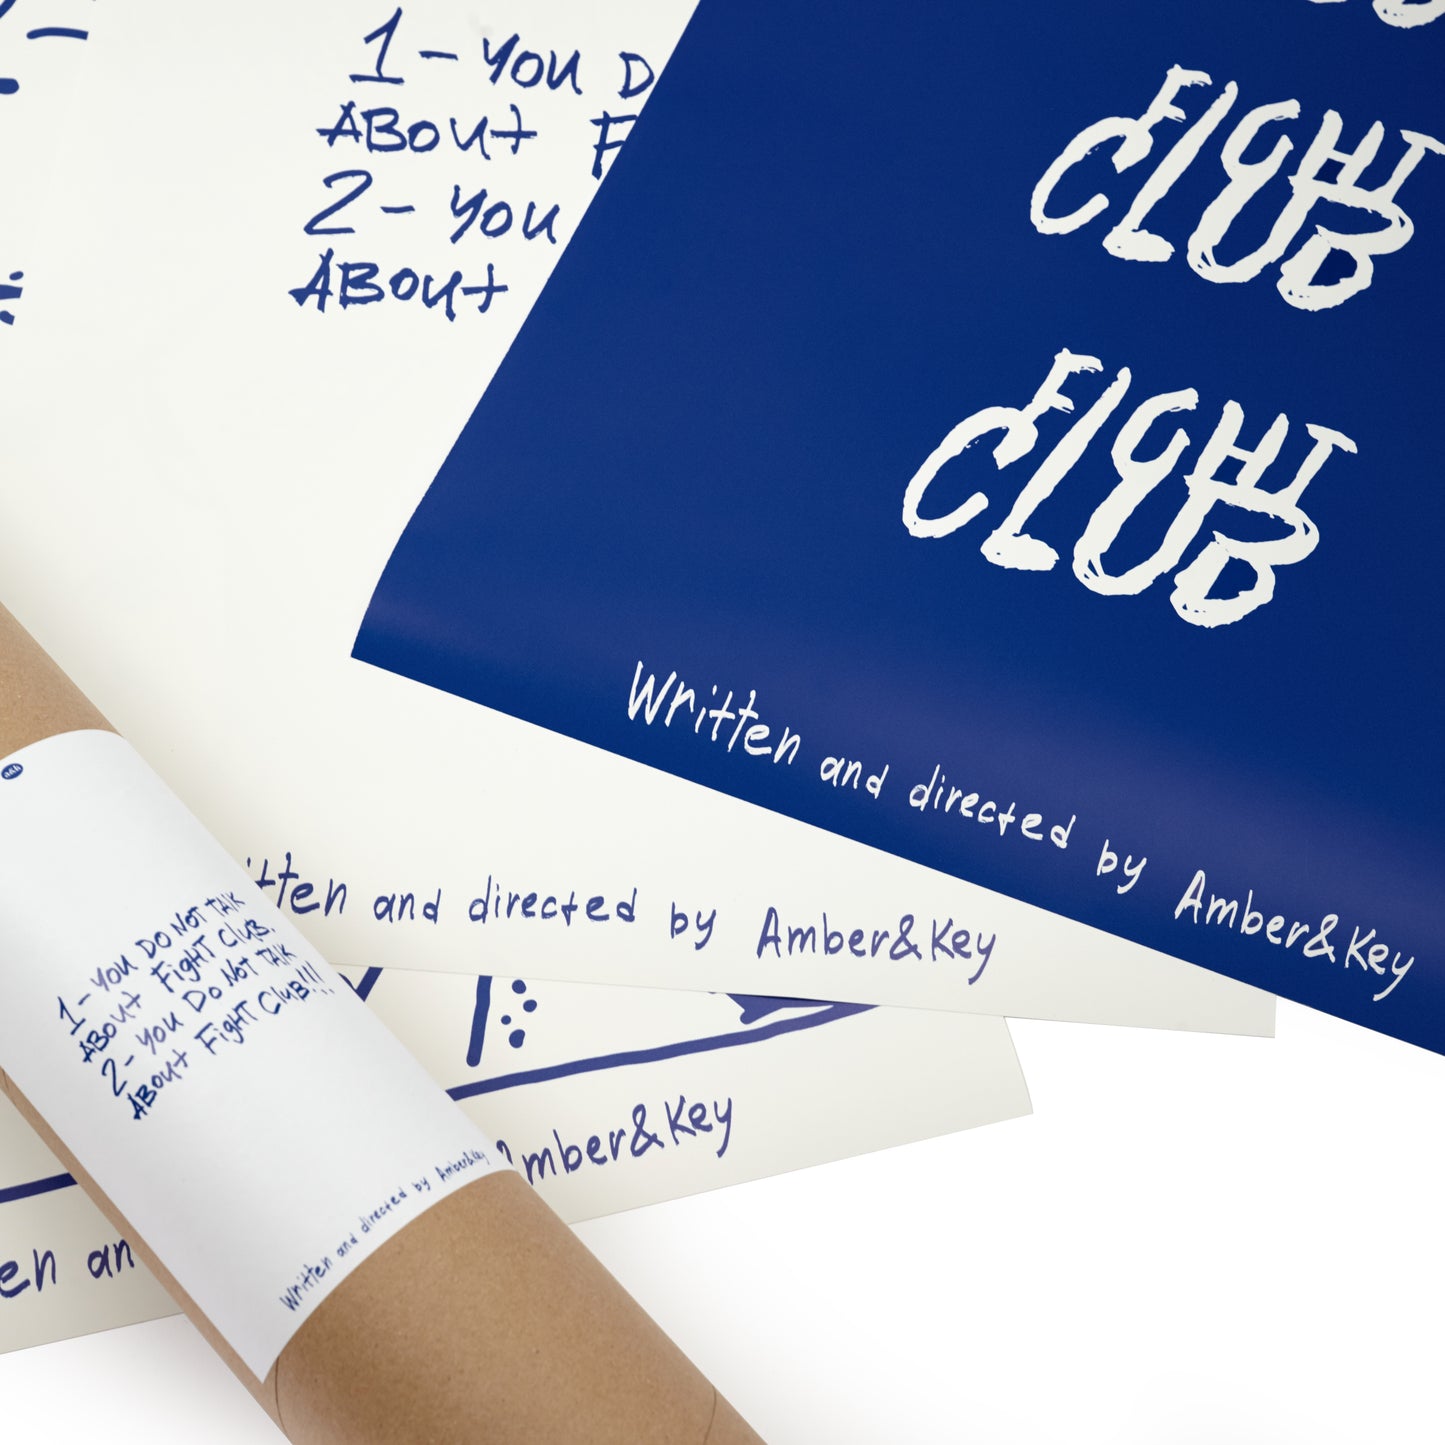 1 - YOU D
ABOUT F
2 - YOU
ABOUT
FIGHT
CLUB
FIGHT
CLUB
Written and directed by Amber&Key
tten and directed by Amber&Key
1 - YOU DO NOT TALK
ABOUT FIGHT CLUB.
2 - YOU DO NOT TALK
ABOUT FIGHT CLUB!!!
Written and directed by Amber&Key
Amber&Key
en an